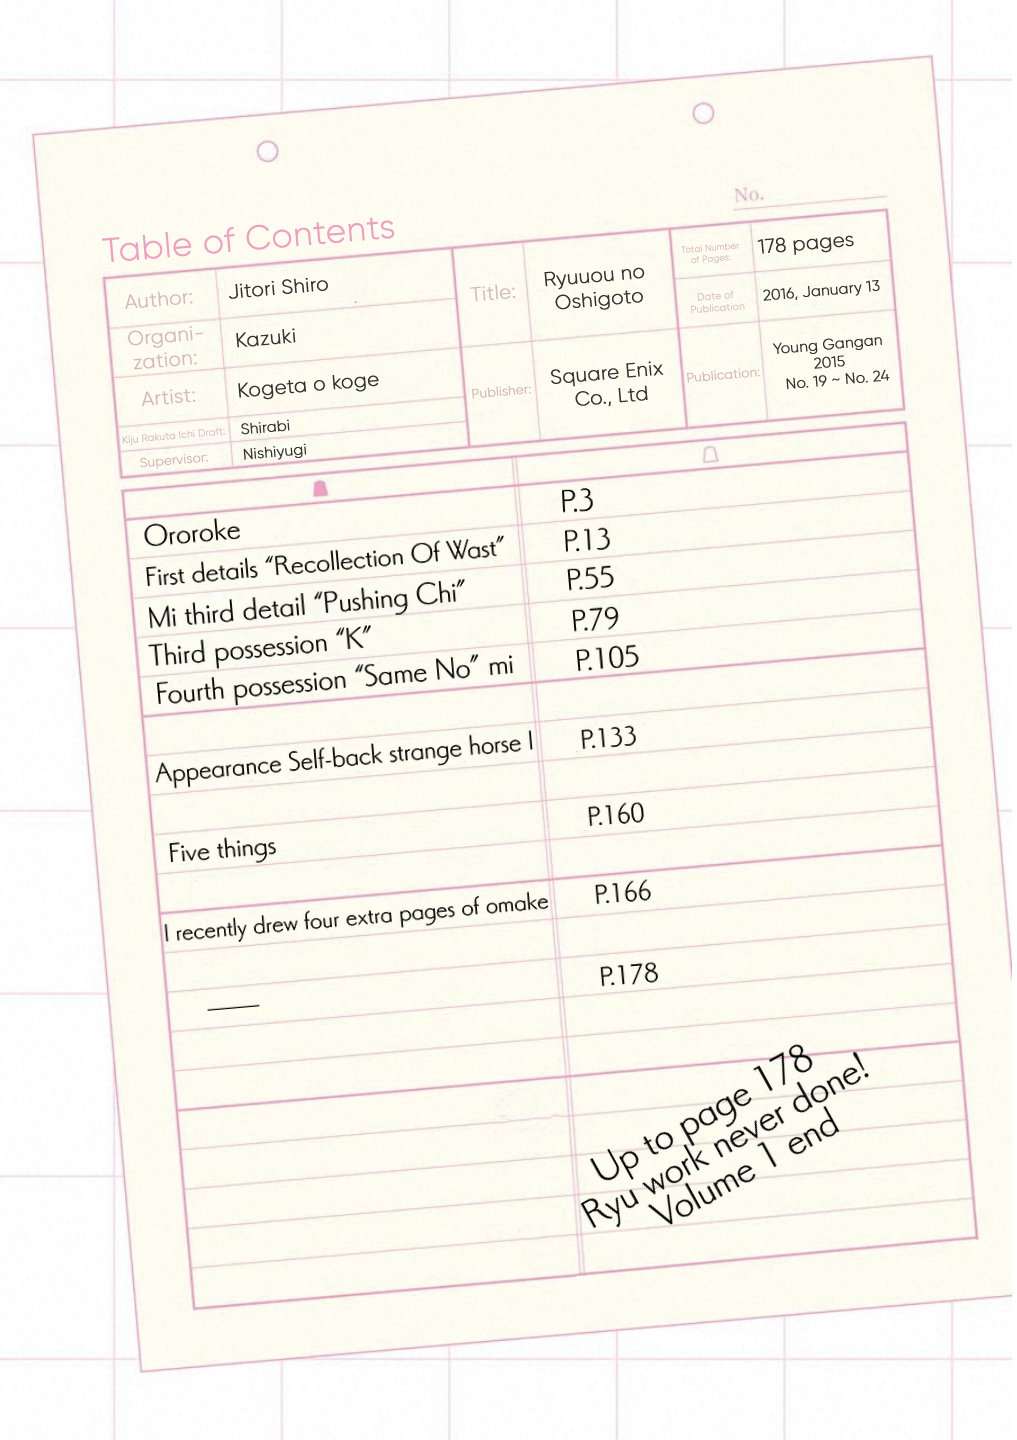 No.
Table of Contents
Author:
Jitori Shiro
Organi-
zation:
Kazuki
Artist:
Kogeta o koge
Kiju Rakuta Ichi Draft:
Shirabi
Supervisor:
Nishiyugi
Title:
Ryuuou no
Oshigoto
Publisher:
Square Enix
Co., Ltd
Total Number
of Pages:
178 pages
Date of
Publication
2016, January 13
Publication:
Young Gangan
2015
No. 19 ~ No. 24
Ororoke
P.3
First details “Recollection Of Wast”
P.13
Mi third detail “Pushing Chi”
P.55
Third possession “K”
P.79
Fourth possession “Same No” mi
P.105
Appearance Self-back strange horse I
P.133
Five things
P.160
I recently drew four extra pages of omake
P.166
P.178
Up to page 178
Ryu work never done!
Volume 1 end